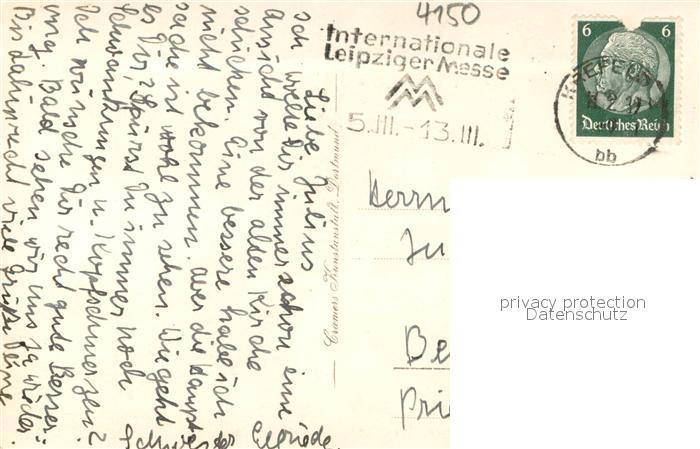 4150
Internationale
Leipziger Messe
5.III. - 13.III.
6 6
Deutsches Reich
KREFELD
bb
Liebe Julius
ich wollte dir immer schon eine
Ansicht von der alten Kirche
schicken. Eine bessere habe ich
nicht bekommen. aber die Haupt
sache ist wohl zu sehen. Wie geht
es Dir? Spürst Du immer noch
Schwankungen u. Kopfschmerzen?
Ich wünsche Dir recht gute Besser=
ung. Bald sehen wir uns ja wieder.
Bis dahin recht viele Grüße Deine
Schwester Elfriede.
Cramers Kunstanstalt, Dortmund
Herrn
Ju
Be
Pri
privacy protection
Datenschutz